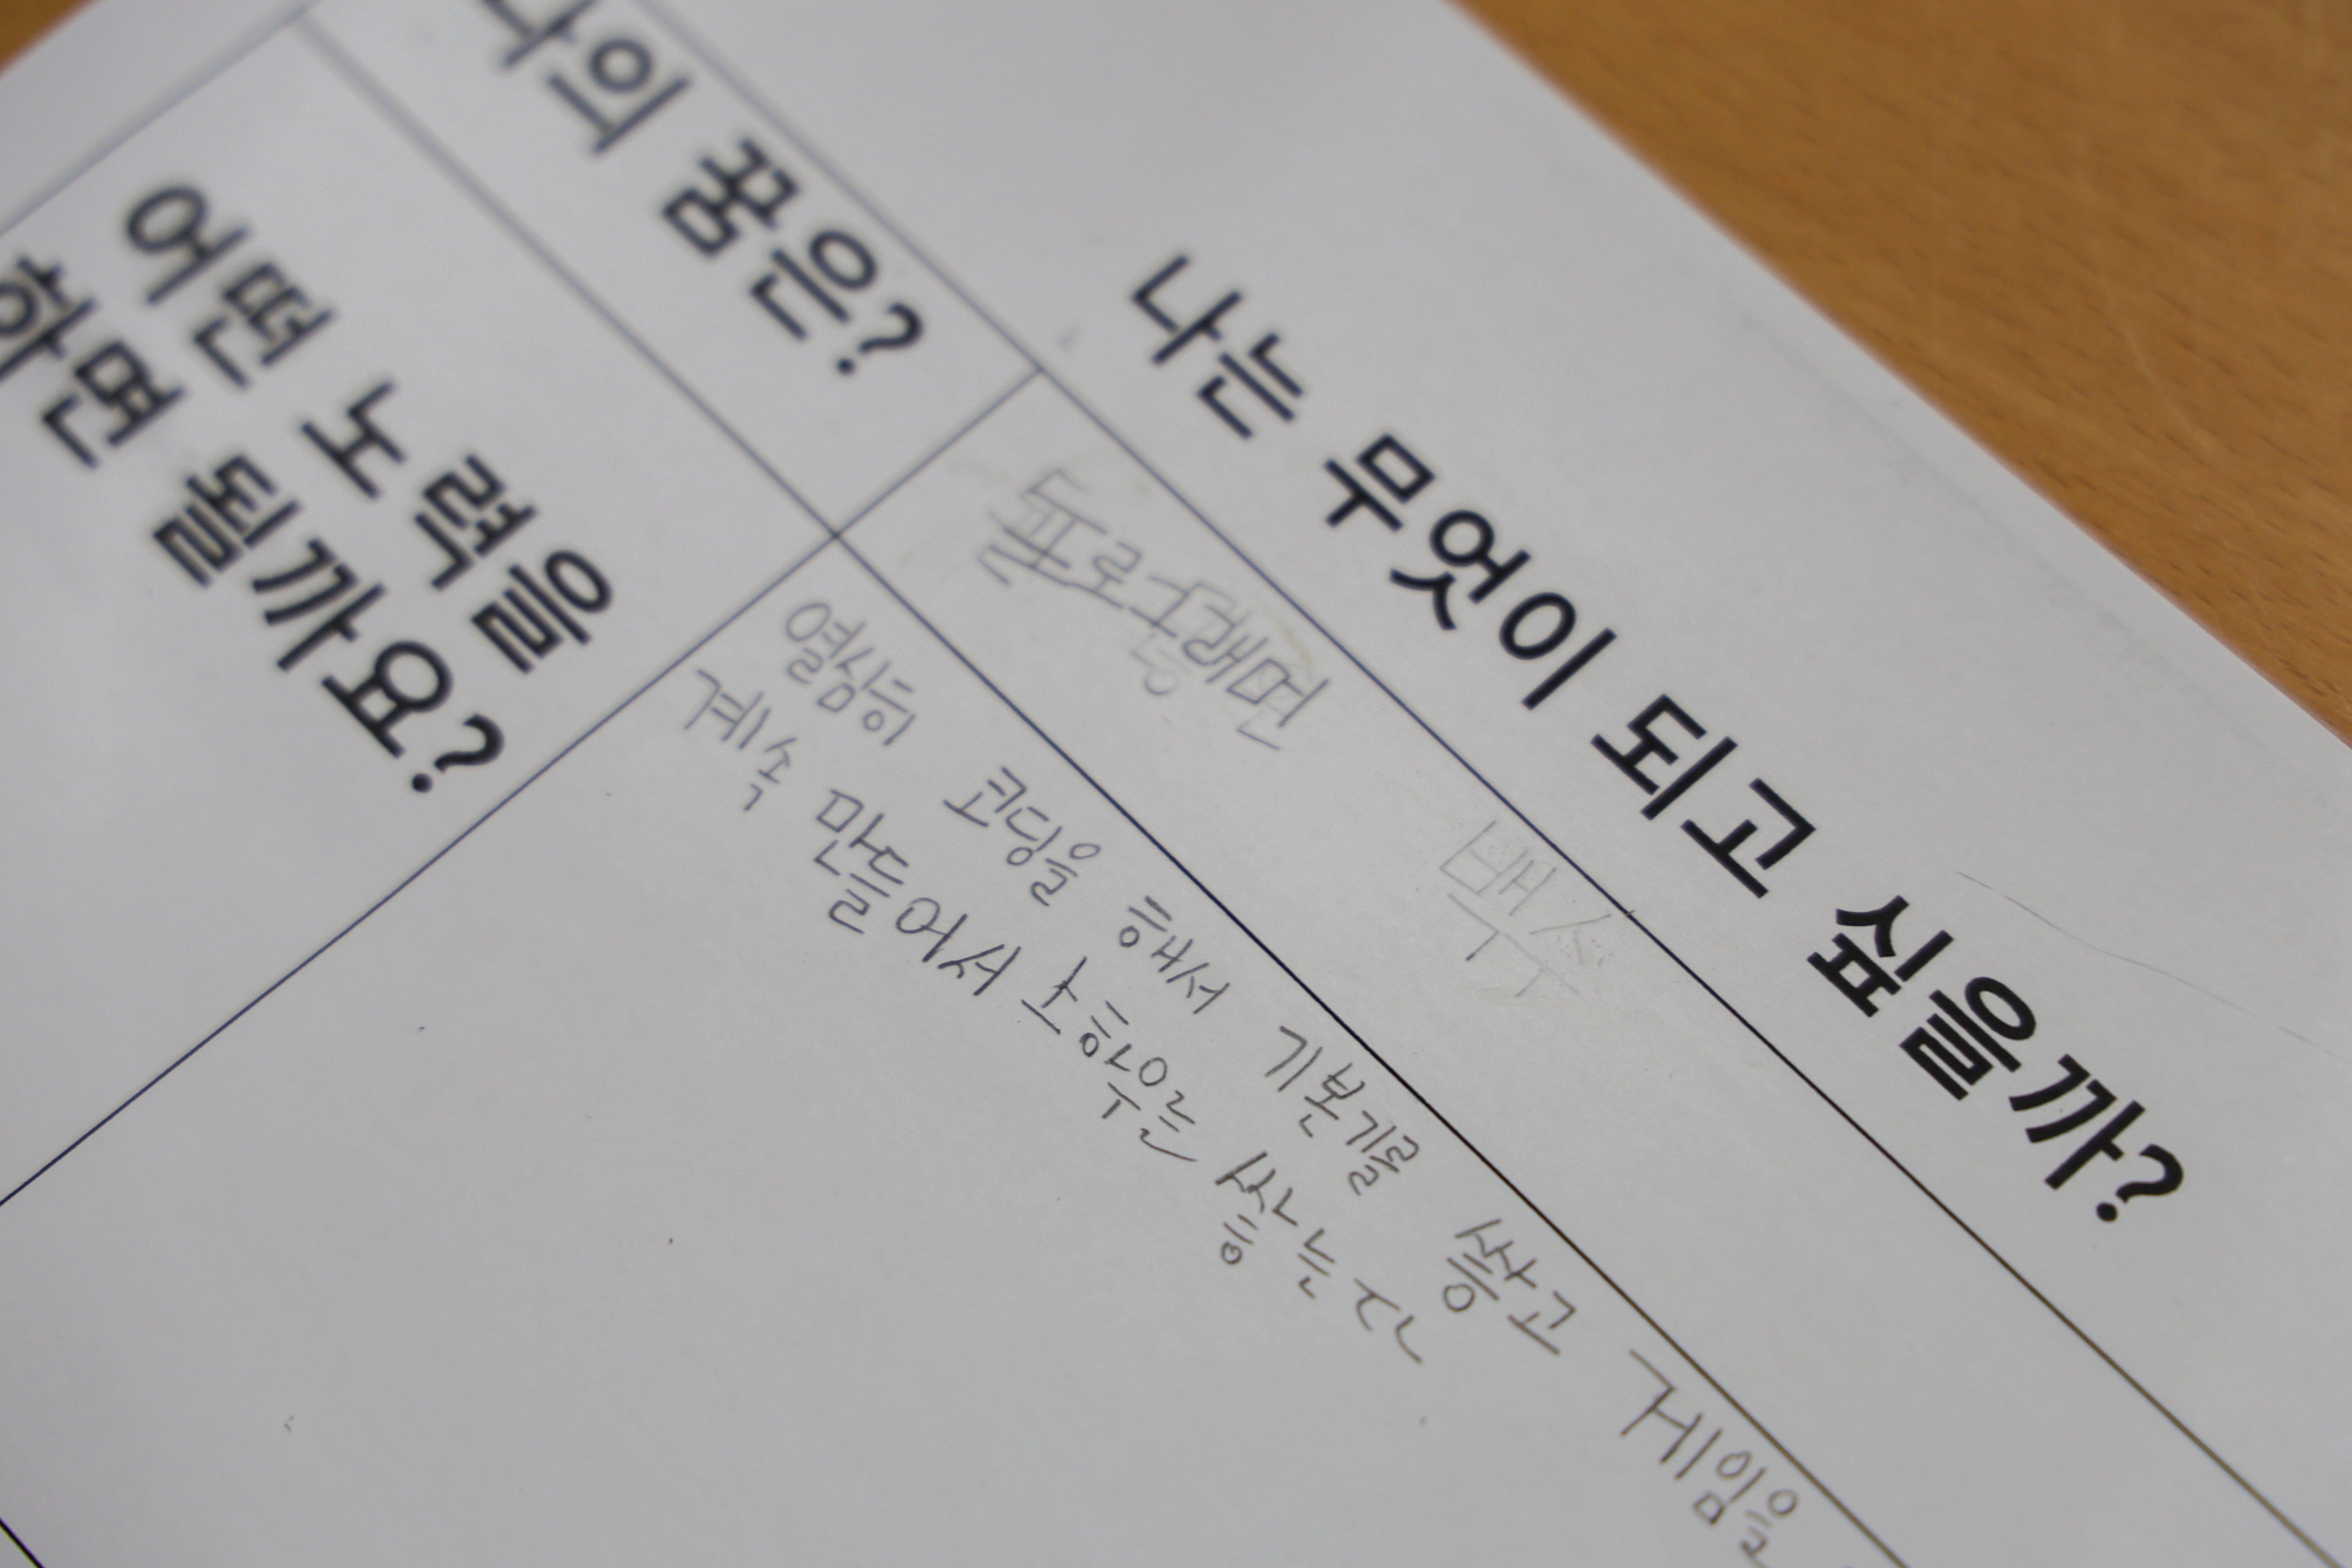 나는 무엇이 되고 싶을까?
나의 꿈은?
프로그래먼
백수
어떤 노력을
하면 될까요?
열심히 코딩을 해서 기본기를 쌓고 게임을
계속 만들어서 노하우를 쌓는다